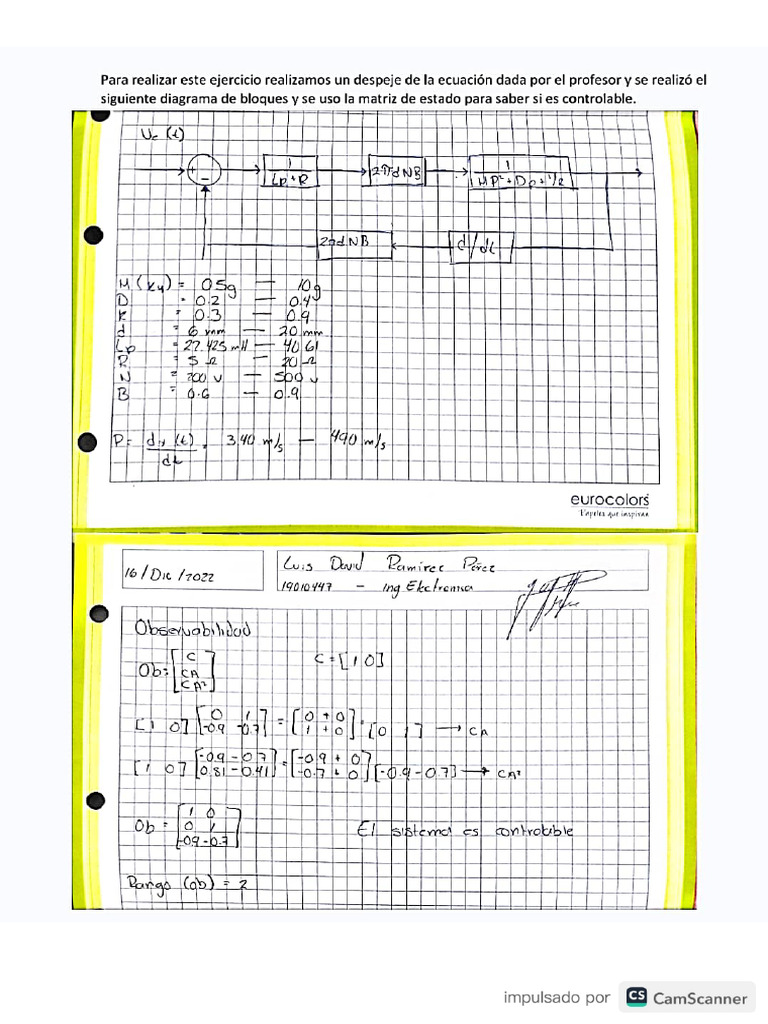 Para realizar este ejercicio realizamos un despeje de la ecuación dada por el profesor y se realizó el
siguiente diagrama de bloques y se uso la matriz de estado para saber si es controlable.
Uc (t)
+ − 1/(Lp+R) 2πdNB 1/(MP²+Dp+1/2)
2πdNB d/dt
M(Kg) = 05g — 10g
D = 0.2 — 0.4
K = 0.3 — 0.9
d = 6 mm — 20 mm
Lp = 27.425 mH — 40 61
R = 5 Ω — 20 Ω
N = 200 v — 500 v
B = 0.6 — 0.9
P = dy(t)/dt = 3.40 m/s — 490 m/s
eurocolors
Papeles que inspiran
16/Dic/2022
Luis David Ramirez Pérez
19010447 - Ing Electronica
Observabilidad
Ob = [C CA CA²] C = [1 0]
[1 0] [0 1 -0.9 -0.7] = [0 + 0 1 + 0] = [0 1] → CA
[1 0] [-0.9 -0.7 0.81 -0.41] = [-0.9 + 0 -0.7 + 0] [-0.9 -0.7] → CA²
Ob = [1 0 0 1 -0.9 -0.7] El sistema es controlable
Rango (ob) = 2
impulsado por CS CamScanner